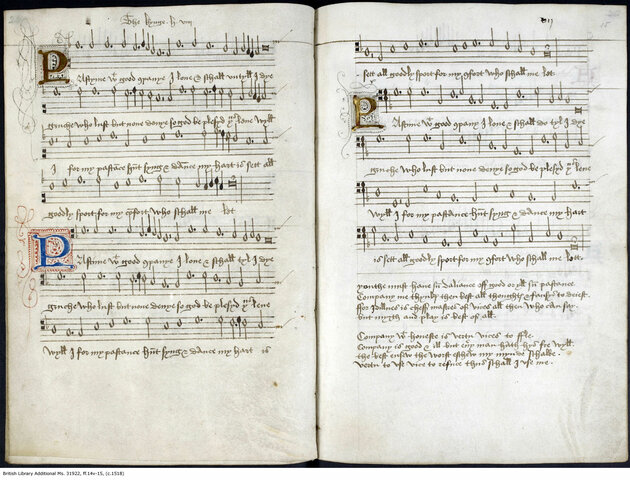 The kynge h viij
Pastyme wt good companye I love & schall untyll I dye
gruche who lust but none denye so god be plesyd thus leve wyll
I for my pastance hunt syng & dance my hart is sett all
goodly sport for my comfort who schall me lett
Pastyme wt good companye I love & schall tyl I dye
gruche who lust but none denye so god be plesyd thus leve
wyll I for my pastance hunt syng & dance my hart is
sett all goodly sport for my comfort who schall me lett
Pastyme wt good companye I love & schall do tyl I dye
gruche who lust but none denye so god be plesyd thus leve
wyll I for my pastance hunt syng & dance my hart
is sett all goodly sport for my comfort who schall me lett
youthe must have sum daliance off good or yll sum pastance
Company me thynkes then best all thoughts & fansys to dejest.
ffor Idillnes is cheff mastres of vices all then who can say.
but myrth and play is best of all.
Company wt honeste is vertu vices to ffle.
Company is good & ill but every man hath hys fre wyll.
the best ensew the worst eschew my mynde schalbe.
vertu to use vice to refuce thus schall I use me.
British Library Additional Ms. 31922, ff.14v-15, (c.1518)